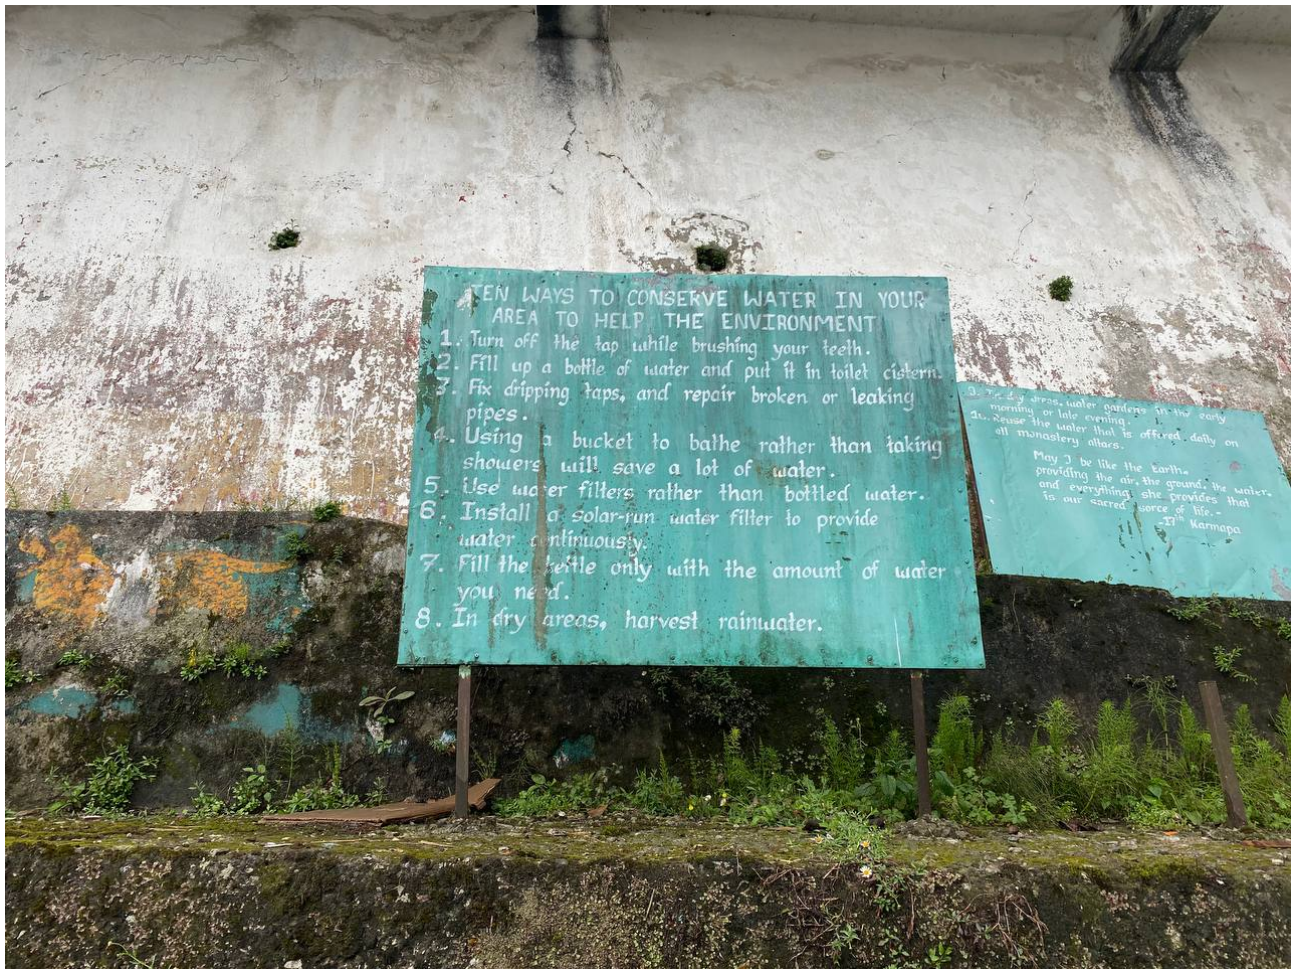 TEN WAYS TO CONSERVE WATER IN YOUR
AREA TO HELP THE ENVIRONMENT
1. Turn off the tap while brushing your teeth.
2. Fill up a bottle of water and put it in toilet cistern.
3. Fix dripping taps, and repair broken or leaking
pipes.
4. Using a bucket to bathe rather than taking
showers will save a lot of water.
5. Use water filters rather than bottled water.
6. Install a solar-run water filter to provide
water continuously.
7. Fill the kettle only with the amount of water
you need.
8. In dry areas, harvest rainwater.
9. In dry areas, water gardens in the early
morning or late evening.
10. Reuse the water that is offered daily on
all monastery altars.
May I be like the Earth.
providing the air, the ground, the water,
and everything she provides that
is our sacred sorce of life.-
-17th Karmapa